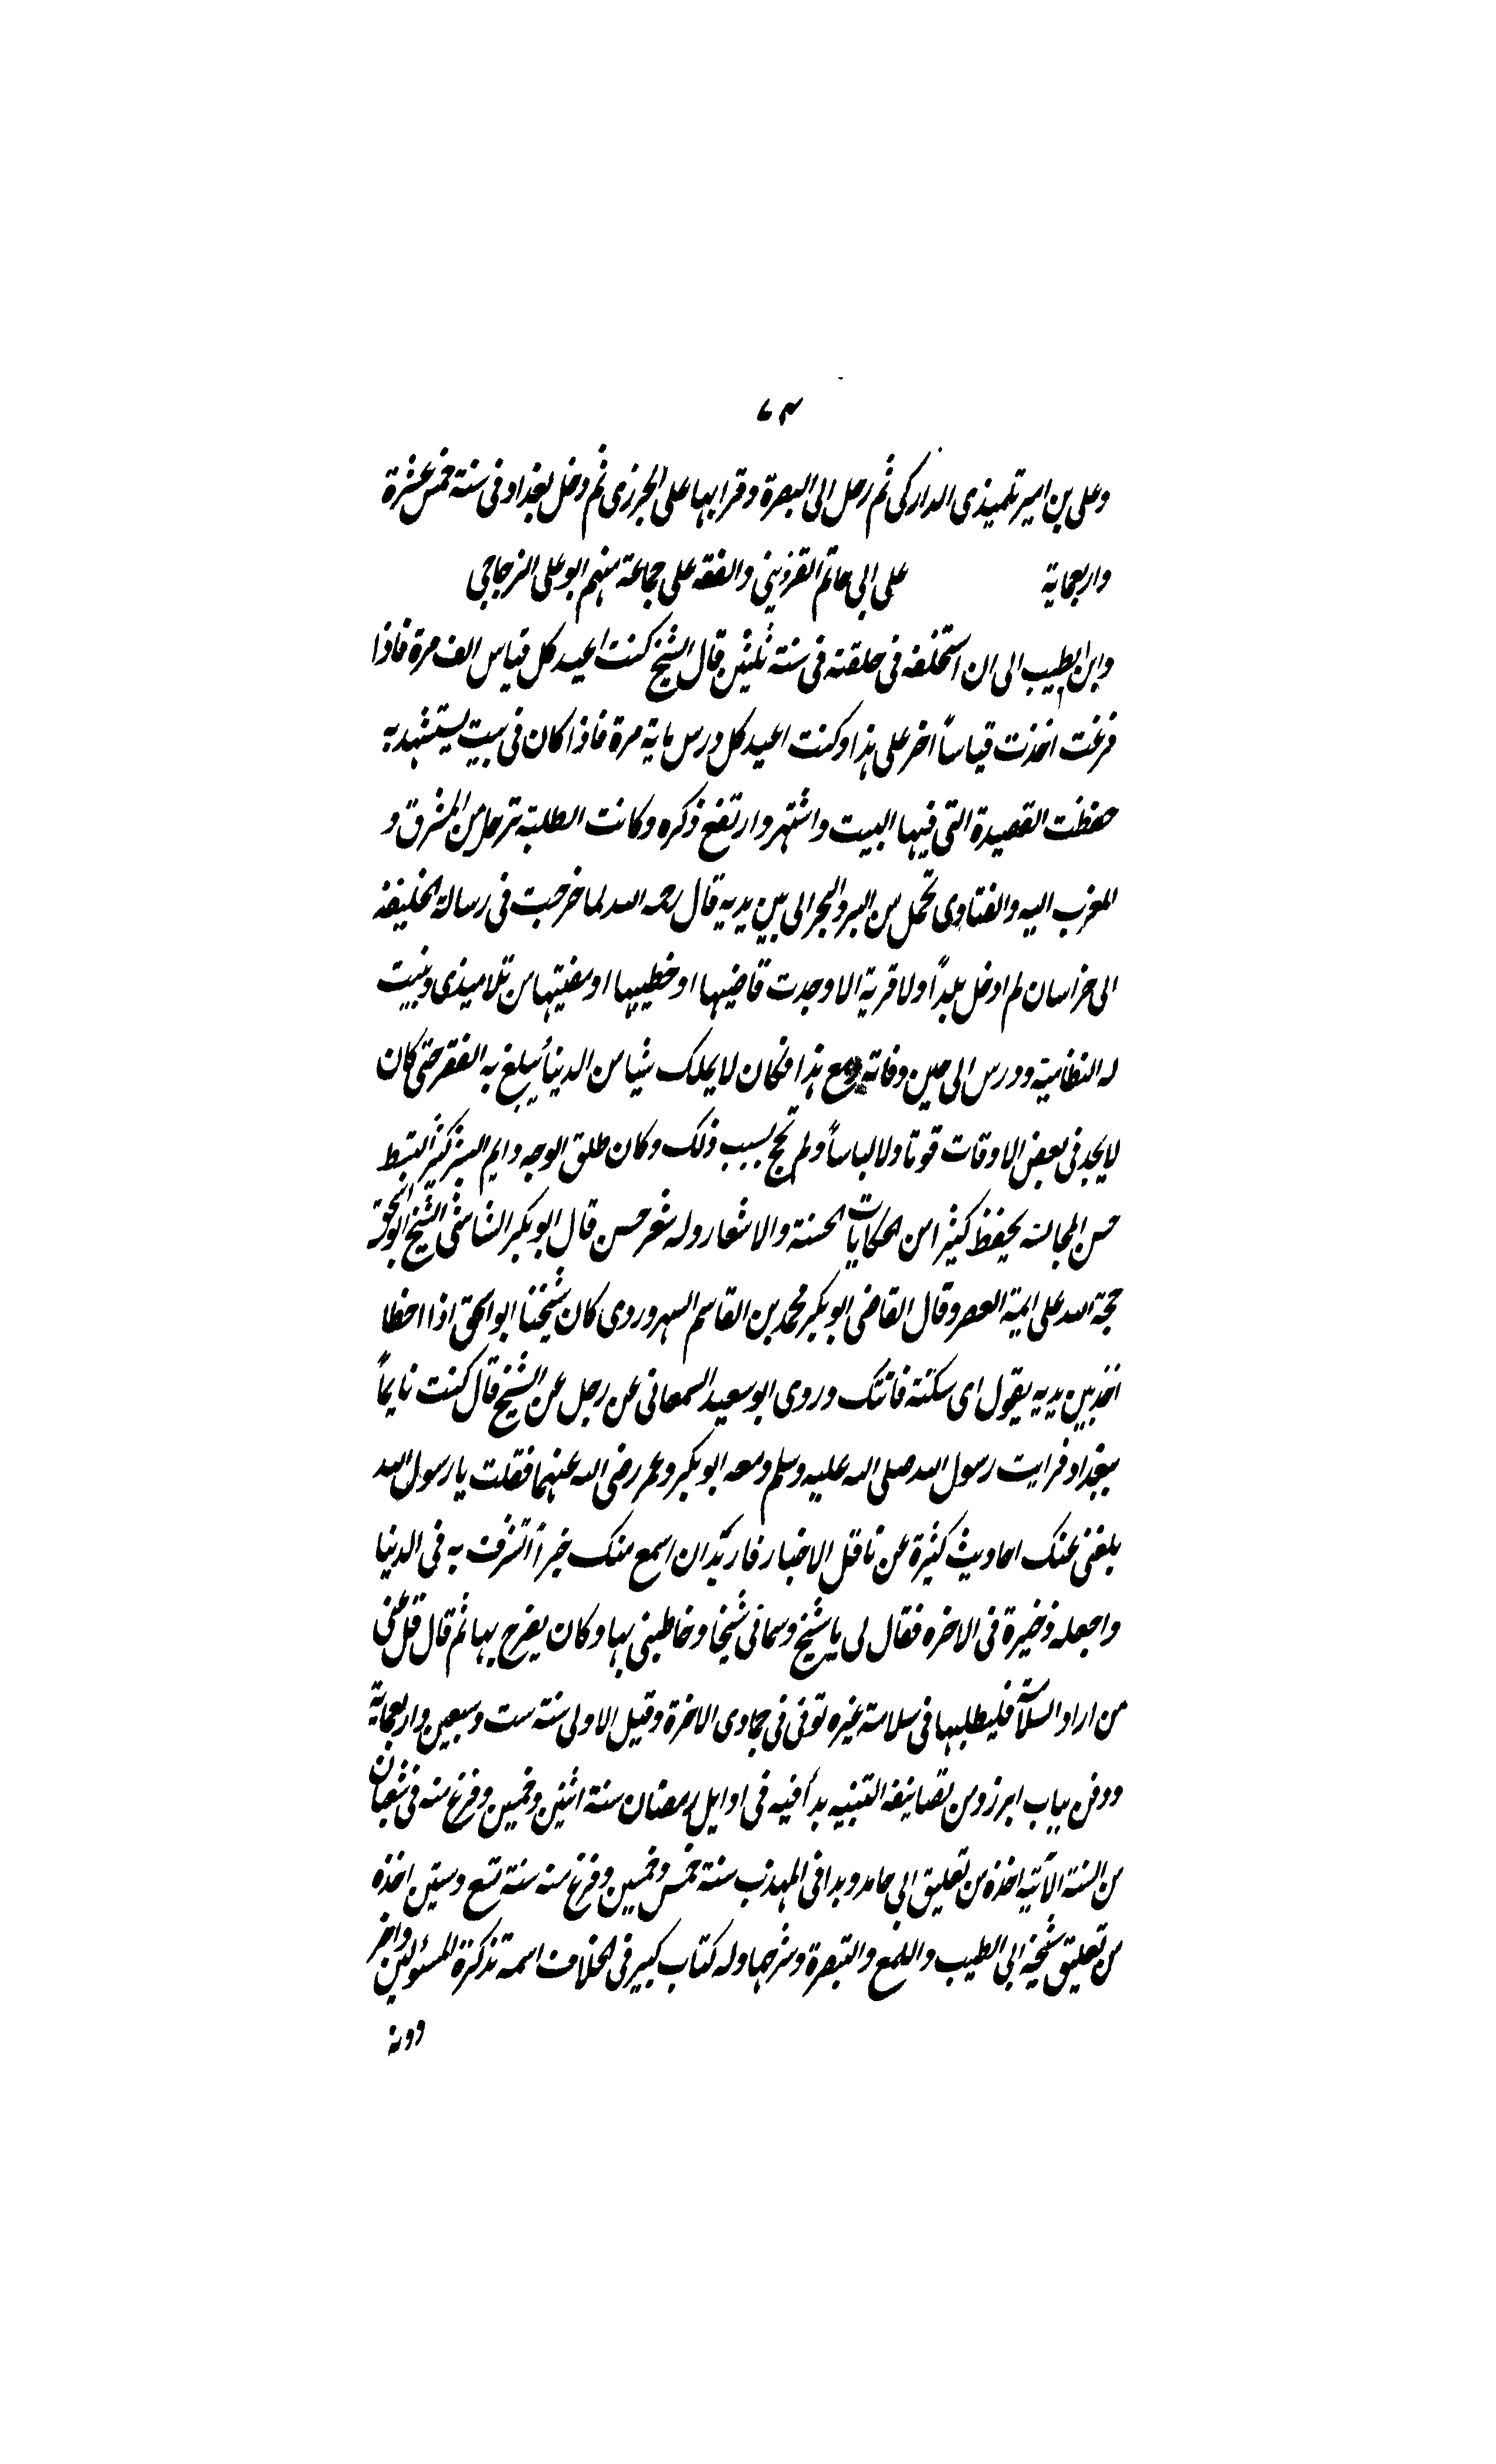 ٧٣
وعلی بن امیر تلمیذی الدارکی ثم رحل الی البصرة وقرا بہا علی الجزری ثم دخل بغداد فی سنة خمس عشرة
واربعمایة علی ابی حاتم القزوینی والفقہ علی جماعة منہم ابو علی الزجاجی
وابن الطیب الی ان استخلفہ فی حلقتہ فی سنة ثلثین قال الشیخ کنت اعید کل قیاس الف مرة فاذا
فرغت اخذت قیاساً اخر علی ہذا وکنت اعید کل درس مایة مرة فاذا کان فی بیت یستشہد بہ
حفظت القصیدة التی فیہا البیت واشتہر وارتفع ذکرہ وکانت الطلبة ترحل من المشرق و
المغرب الیہ والفتاوی تحمل من البر والبحر الی بین یدیہ قال رحمہ اللہ لما خرجت فی رسالة الخلیفہ
الی خراسان لم ادخل بلداً ولا قریة الا وجدت قاضیہا او خطیبہا او مفتیہا من تلامیذی وبنیت
لہ النظامیة ودرس الی حین وفاتہ ومع ہذا فکان لا یملک شیا من الدنیا یبلغ بہ الفقر حتی کان
لا یجد فی بعض الاوقات قوتا ولا لباساً ولم یحج بسبب ذلک وکان طلق الوجہ دایم البشر کثیر البسط
حسن المجالسہ یحفظ کثیرا من الحکایات الحسنة والاشعار ولہ شعر حسن قال ابو بکر الشاشی الشیخ ابو اسحق
حجة اللہ علی ایمة العصر وقال القاضی ابو بکر محمد بن القاسم السہروردی کان شیخنا ابو اسحق اذا اخطا
احد بین یدیہ یقول ای سکتة فاتتک وروی ابو سعید السمعانی عن رجل عن الشیخ قال کنت نایماً
ببغداد فرایت رسول اللہ صلی اللہ علیہ وسلم ومعہ ابو بکر وعمر رضی اللہ عنہما فقلت یا رسول اللہ
بلغنی عنک احادیث کثیرة عن ناقل الاخبار فارید ان اسمع منک خبراً اتشرف بہ فی الدنیا
واجعلہ ذخیرة فی الاخرہ فقال لی یا شیخ وسمانی شیخا وخاطبنی بہا وکان یفرح بہا ثم قال قل عنی
من اراد السلامة فلیطلبہا فی سلامة غیرہ توفی فی جمادی الاخرة وقیل الاولی سنة ست وسبعین واربعمایة
ودفن بباب ابرز ومن تصانیفہ التنبیہ بدأ فیہ فی اوایل رمضان سنة اثنین وخمسین وفرغ منہ فی شعبان
من السنة الآتیہ اخذہ من تعلیق ابی حامد وبدا فی المہذب سنة خمس وخمسین وفرغ منہ سنة تسع وستین اخذہ
من تعلیق شیخہ ابی الطیب واللمع والتبصرة وشرحہا ولہ کتاب کبیر فی الخلاف اسمہ تذکرة المسئولین واخر
دونہ